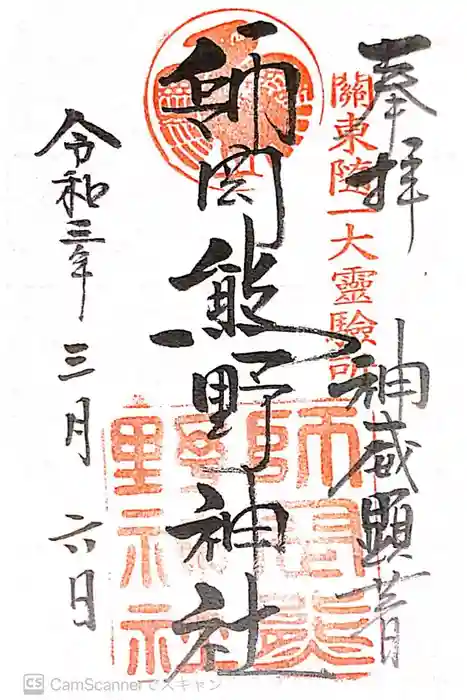 奉拝
神威顕著
關東随一大靈驗所
師岡熊野神社
師岡熊野神社
令和三年
三月
六日
CS CamScannerでスキャン